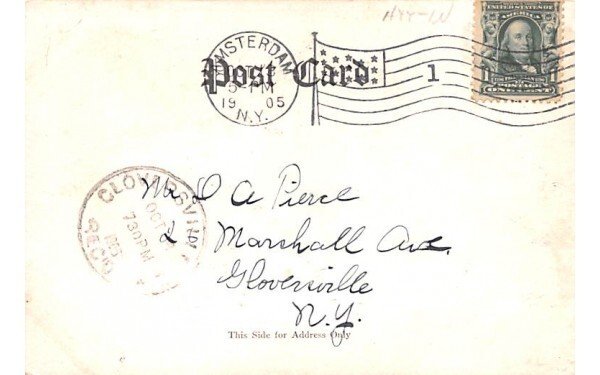 UNITED STATES OF
AMERICA
POSTAGE
ONE CENT
Post Card
AMSTERDAM
5-PM
19 05
N.Y.
1
GLOVERSVILLE
OCT
730PM
REC'D
Mr D A Pierce
2 Marshall Ave.
Gloversville
N.Y.
This Side for Address Only